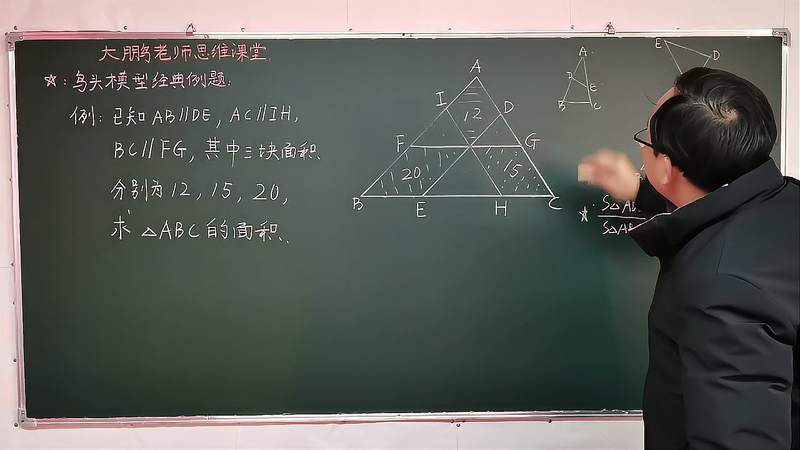 大鹏老师思维课堂
☆:鸟头模型经典例题:
例:已知AB∥DE,AC∥IH,
BC∥FG,其中三块面积
分别为12,15,20,
求△ABC的面积.
A
I
D
12
F
G
20
15
B
E
H
C
A
D
E
B
C
E
D
☆:
S△AD
S△AB